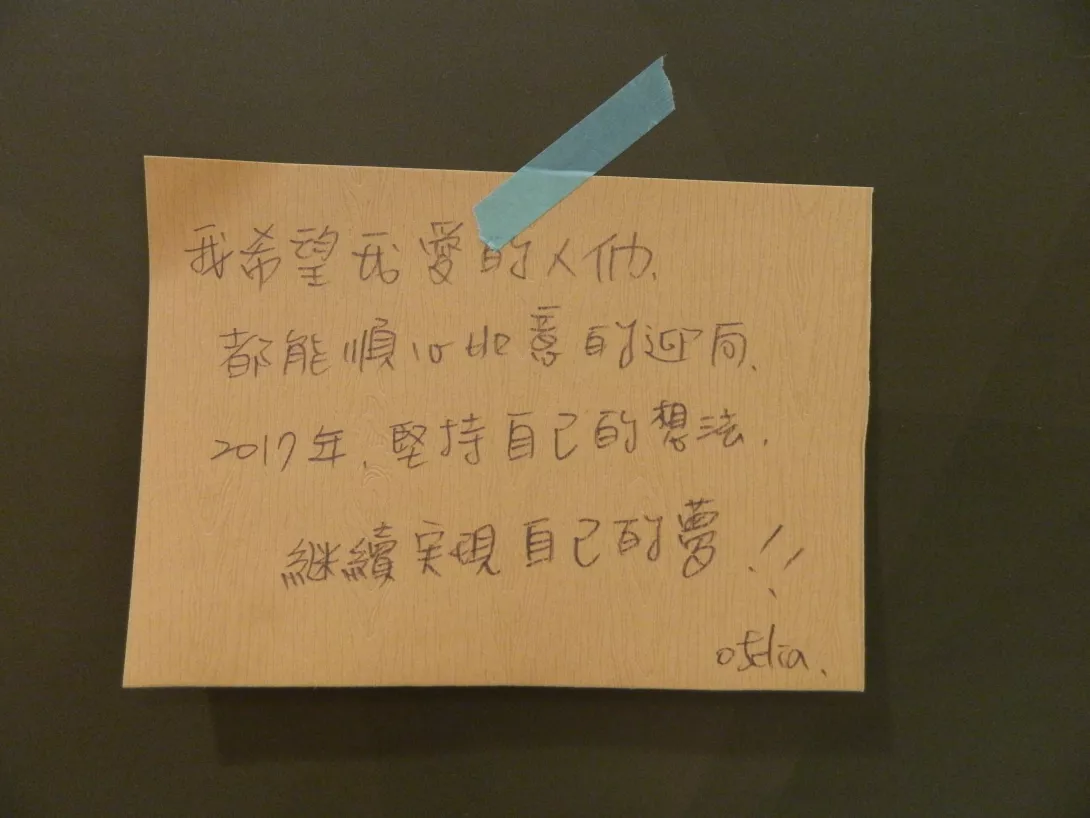 我希望我愛的人們、
都能順心如意的迎向、
2017年、堅持自己的想法、
継續実現自己的夢!!